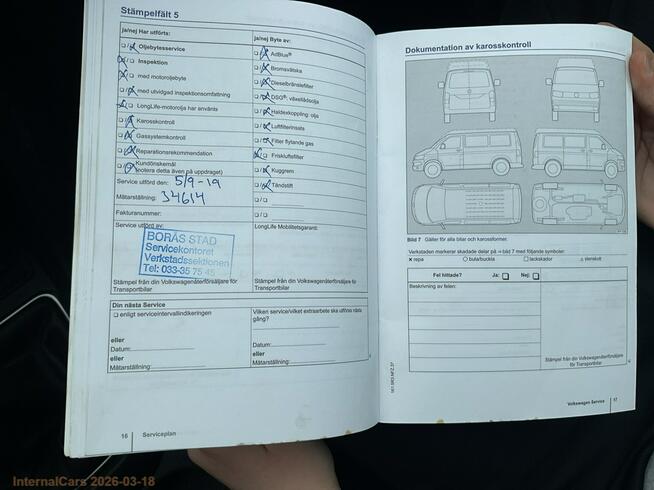 Stämpelfält 5
ja/nej Har utförts:
Oljebytesservice
Inspektion
med motoroljebyte
med utvidgad inspektionsomfattning
LongLife-motorolja har använts
Karosskontroll
Gassystemkontroll
Reparationsrekommendation
Kundönskemål
(notera detta även på uppdraget)
Service utförd den: 5/9-19
Mätarställning: 34614
Fakturanummer:
Service utförd av:
BORÅS STAD
Servicekontoret
Verkstadssektionen
Tel: 033-35 75 45
Stämpel från din Volkswagenåterförsäljare för
Transportbilar
ja/nej Byte av:
AdBlue®
Bromsvätska
Dieselbränslefilter
DSG®: växellådsolja
Haldexkoppling: olja
Luftfilterinsats
Filter flytande gas
Friskluftsfilter
Kuggrem
Tändstift
LongLife Mobilitetsgaranti:
Stämpel från din Volkswagenåterförsäljare för
Transportbilar
Din nästa Service
enligt serviceintervallindikeringen
eller
Datum:
eller
Mätarställning:
Vilken service/vilket extraarbete ska utföras nästa
gång?
eller
Datum:
eller
Mätarställning:
16 Serviceplan
Dokumentation av karosskontroll
Bild 7 Gäller för alla bilar och karossformer.
Verkstaden markerar skadade delar på ⇒ bild 7 med följande symboler:
× repa ○ bula/buckla □ lackskador △ stenskott
Fel hittade? Ja: Nej:
Beskrivning av felen:
Stämpel från din Volkswagenåterförsäljare
för Transportbilar
Volkswagen Service 17
InternalCars 2026-03-18